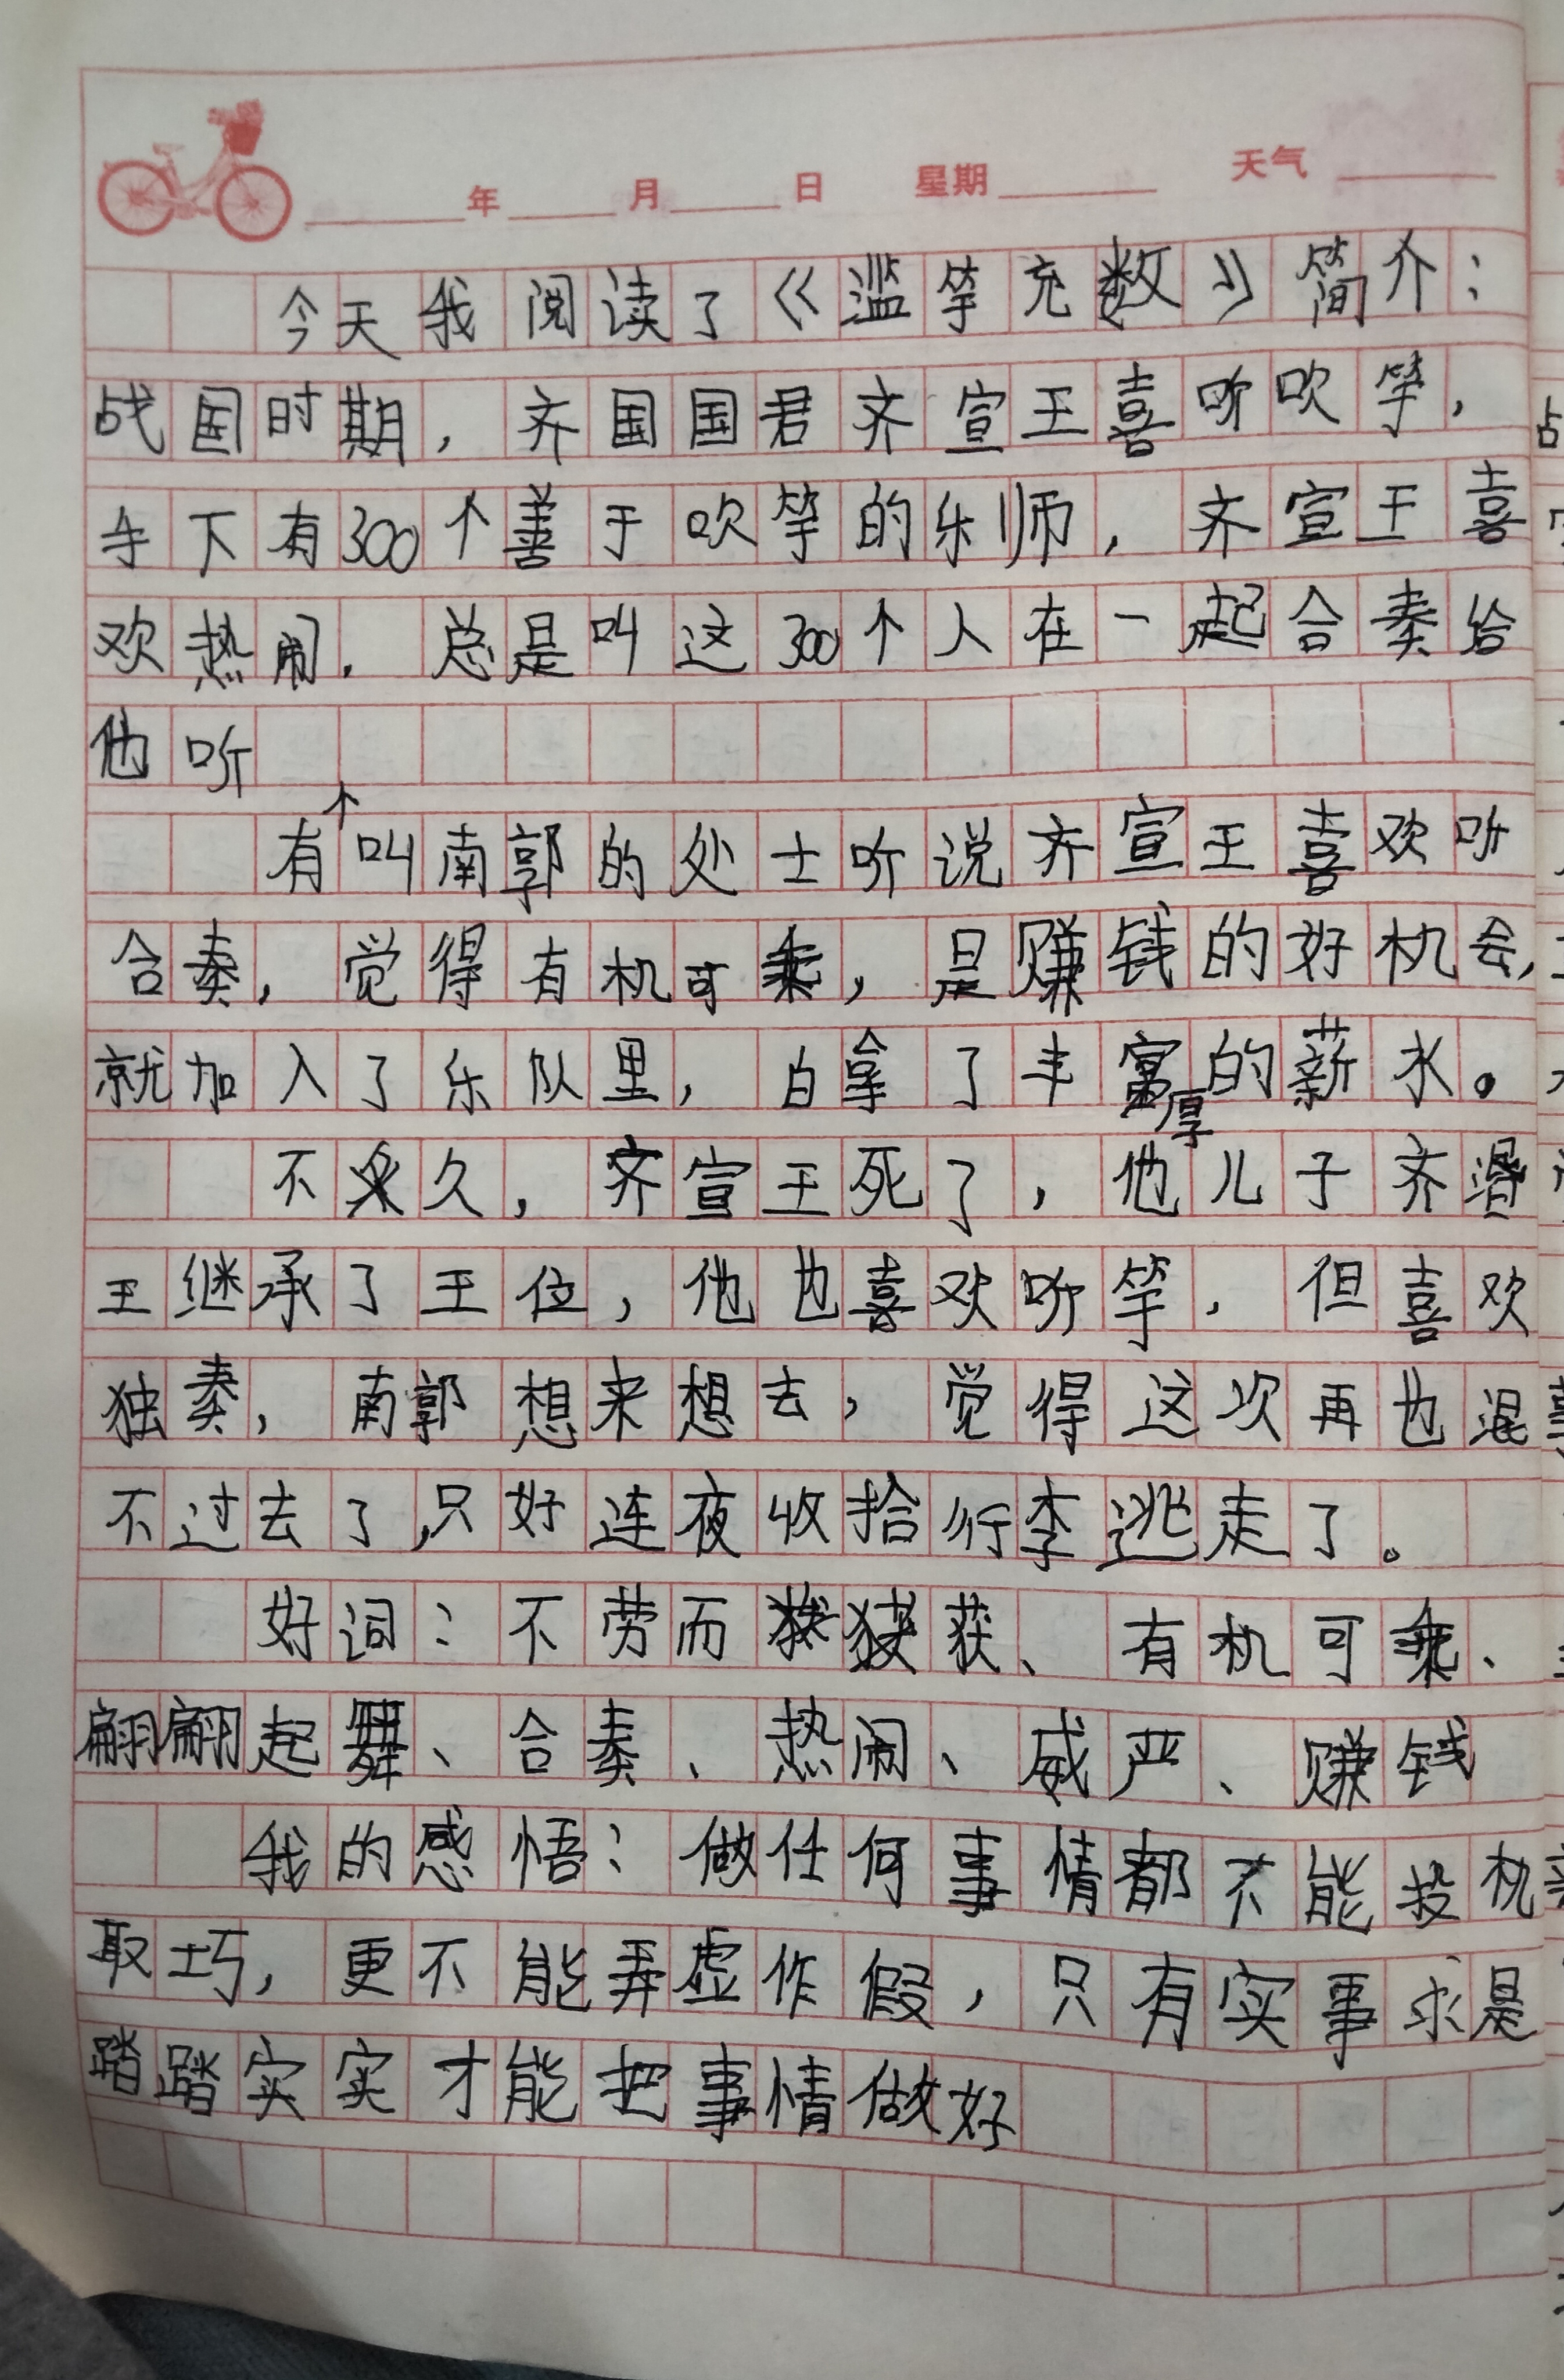 年 月 日 星期 天气
今天我阅读了《滥竽充数》简介：
战国时期，齐国国君齐宣王喜听吹竽，
手下有300个善于吹竽的乐师，齐宣王喜
欢热闹．总是叫这300个人在一起合奏给
他听
有个叫南郭的处士听说齐宣王喜欢听
合奏，觉得有机可乘，是赚钱的好机会，
就加入了乐队里，白拿了丰厚的薪水。
不久，齐宣王死了，他儿子齐湣
王继承了王位，他也喜欢听竽，但喜欢
独奏，南郭想来想去，觉得这次再也混
不过去了，只好连夜收拾行李逃走了。
好词：不劳而获、有机可乘、
翩翩起舞、合奏、热闹、威严、赚钱
我的感悟：做任何事情都不能投机
取巧，更不能弄虚作假，只有实事求是
踏踏实实才能把事情做好